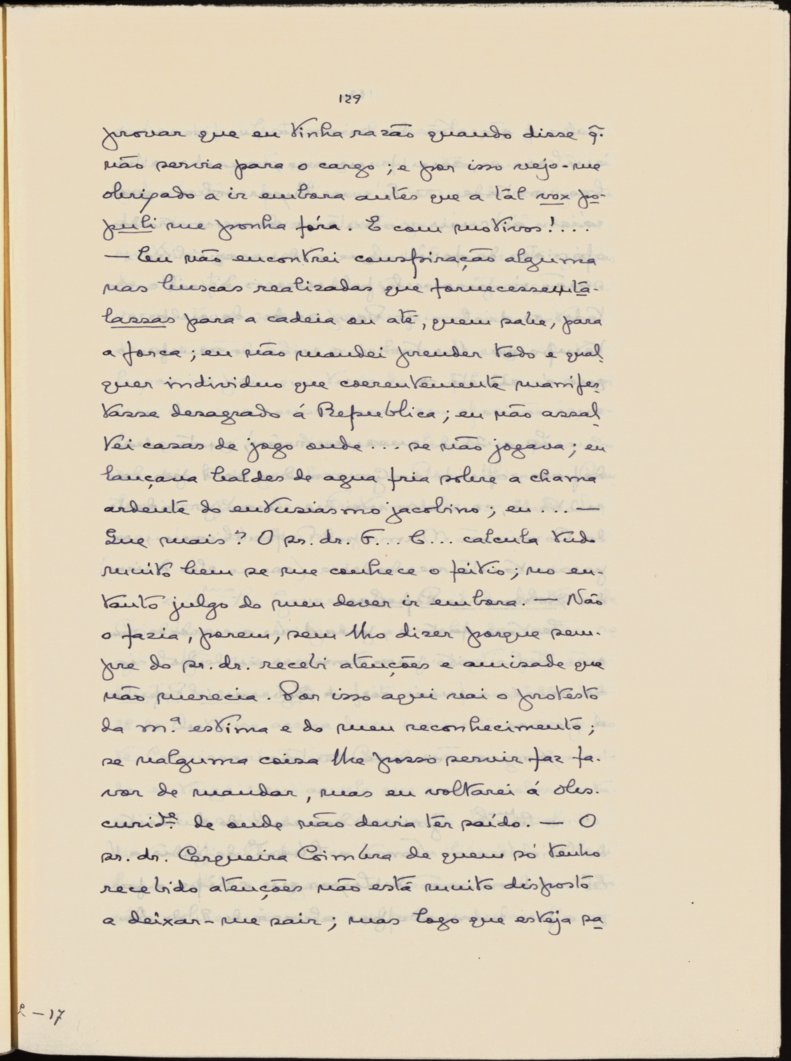 129
provar que eu tinha razão quando disse q̃.
não servia para o cargo; e por isso vejo-me
obrigado a ir embora antes que a tal vox po-
puli me ponha fóra. E com motivos!....
— Eu não encontrei conspiração alguma
nas buscas realizadas que fornecessem ta-
lassas para a cadeia ou até, quem sabe, para
a forca; eu não mandei prender todo e qual-
quer individuo que coerentemente manifes-
tasse desagrado á Republica; eu não assal-
tei casas de jogo onde ... se não jogava; eu
lançava baldes de agua fria sobre a chama
ardente do entusiasmo jacobino; eu ... —
Que mais? O sr. dr. F... C... calcula tudo
muito bem se me conhece o feitio; no en-
tanto julgo do meu dever ir embora. — Não
o fazia, porem, sem lho dizer porque sem-
pre do sr. dr. recebi atenções e amizade que
não merecia. Por isso aqui vai o protesto
da m.ª estima e do meu reconhecimento;
se nalguma coisa lhe posso servir faz fa-
vor de mandar, mas eu voltarei á obs-
curid.e de onde não devia ter saído. — O
sr. dr. Cerqueira Coimbra de quem só tenho
recebido atenções não está muito disposto
a deixar-me sair; mas logo que esteja sa
2-17